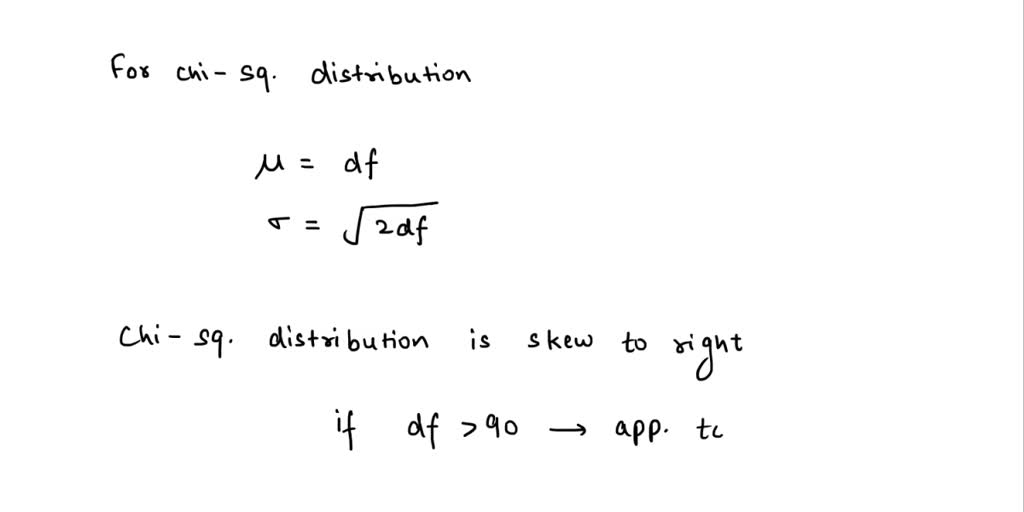 For chi- sq. distribution
μ = df
σ = √2df
Chi- sq. distribution is skew to right
if df > 90 → app.